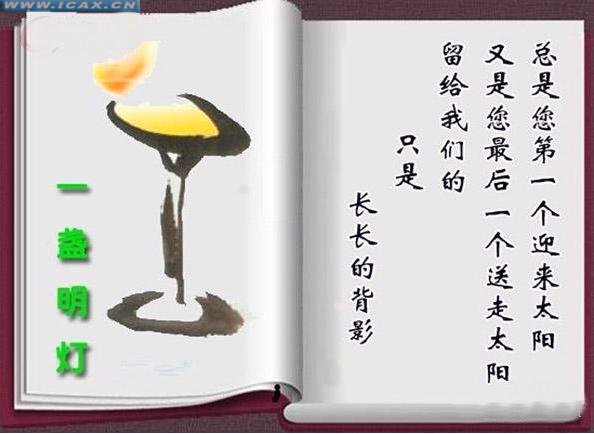 WWW.ICAX.CN
一盏明灯
总是您第一个迎来太阳
又是您最后一个送走太阳
留给我们的
只是
长长的背影